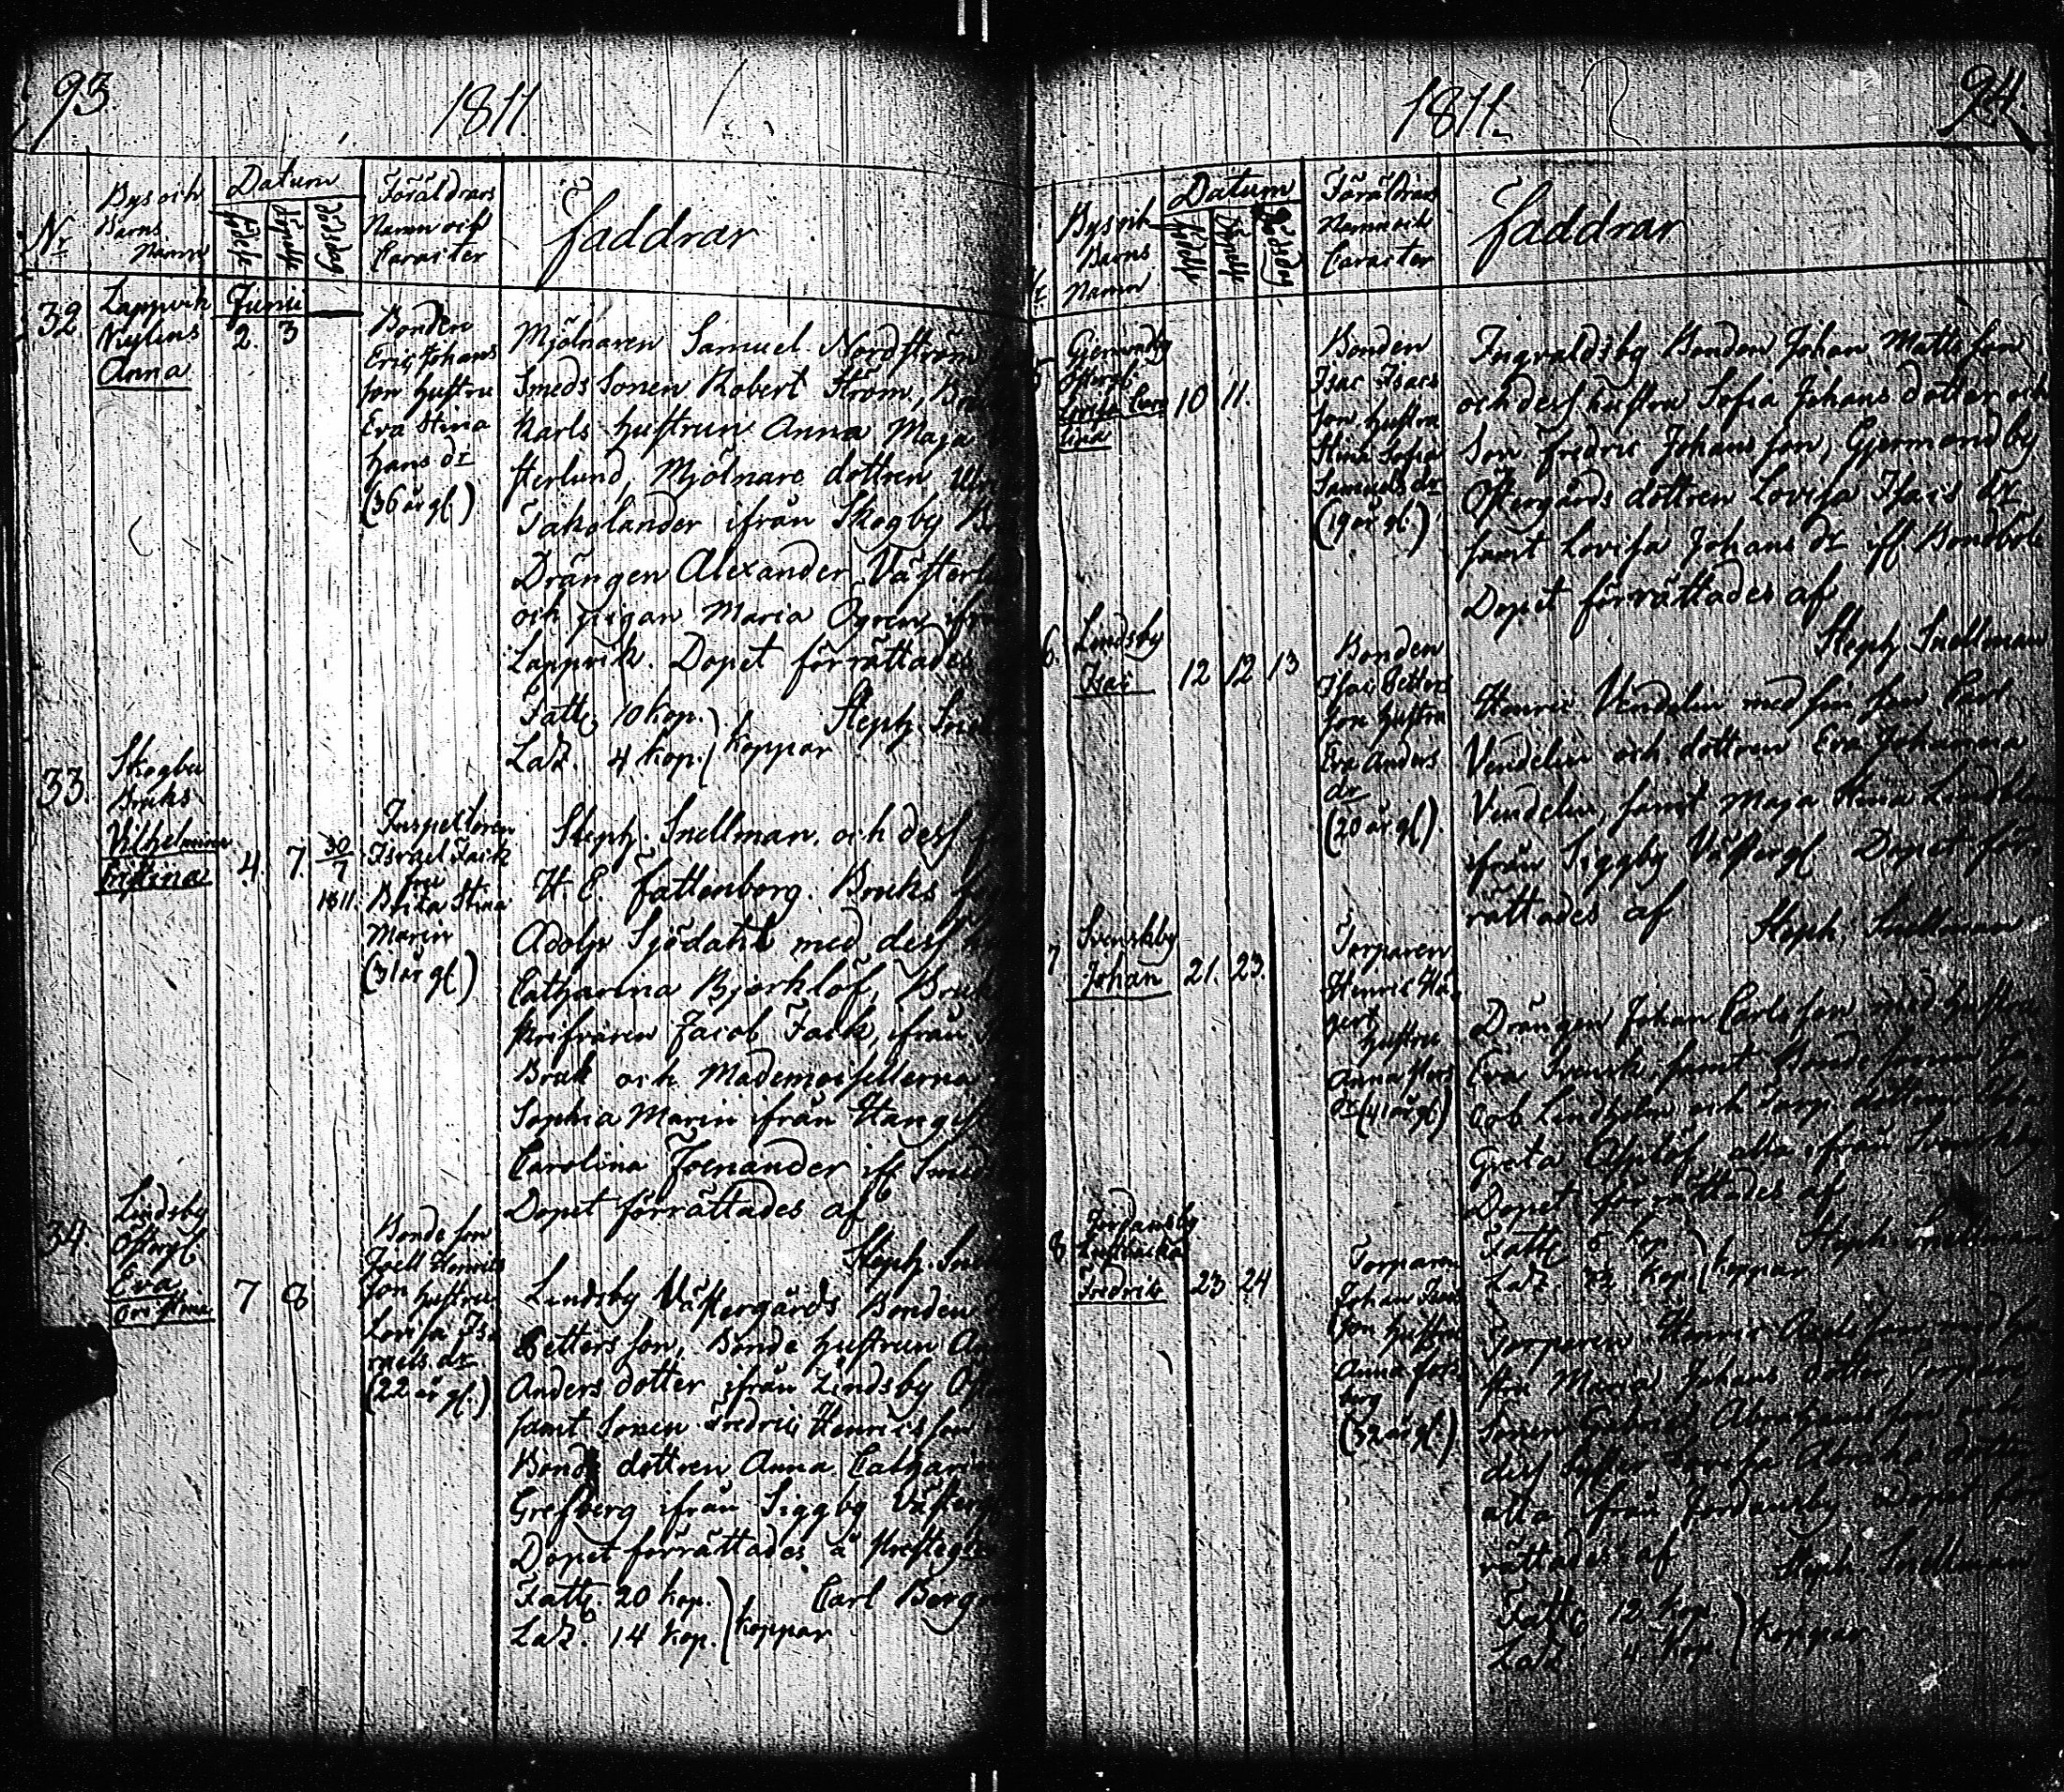 93.
1811.
Nr
Bys och
Barns
Namn
Datum
födelse
döpelse
dödsdag
Föräldrars
Namn och
Caracter
Faddrar
32.
Lappvik
Nylens
Anna
Junii
2. 3
Bonden
Eric Johans
son hustru
Eva Stina
Hans dr
(36 år gl.)
Mjölnaren Samuel Nordström
Smeds Sonen Robert Ström,
Karls hustrun Anna Maja
sterlund, Mjölnare dottren
ifrån Skogby
Drängen Alexander Väster
och pigan Maria Ögren ifrå
Lappvik. Dopet förrättades
Fatt. 10 kop.
Laz. 4 kop. koppar
Steph. Snell
33.
Skogby
Bruks
Vilhelmina
Cristina
4. 7. 30/7
1811.
Inspectoren
Israel Falk
fru
Brita Stina
Marin
(31 år gl.)
Steph. Snellman och dess
H. E. Fattenborg. Bruks
Adolp Sjödahl med dess
Catharina Björklöf, Bruk
Jacob Falk, ifrån
Bruk och Mademoisellerna
Sophia Marin ifrån
Carolina Forsander
Dopet förrättades af
Steph. Snell
34.
Lindsby
Östergl.
Eva
Cristina
7 8
Bonde son
Joell Henrics
son hustru
Lovisa Isa
raels dr
(22 år gl.)
Lindsby Västergårds Bonden
Petters son, Bonde hustrun
Anders dotter ifrån Lindsby
samt Sonen Fredric Henrics son
Bonde dottren Anna Catharin
Grefberg ifrån Siggby Västergl
Dopet förrättades å
Fatt. 20 kop.
Laz. 14 kop. koppar
Carl Berg
1811.
94.
Bys och
Barns
Namn
Datum
födelse
döpelse
dödsdag
Föräldrars
Namn och
Caracter
Faddrar
Gjermundby
Östergl.
Lovisa Caro
lina
10 11.
Bonden
Isac Isacs
son hustru
Stina Sofia
Samuels dr
(19 år gl.)
Ingvaldsby Bonden Johan Matts son
och dess hustru Sofia Johans dotter och
Son Fredric Johans son, Gjermondby
Östergårds dottren Lovisa Isacs dr
samt Lovisa Johans dr iff. Bondböle
Dopet förrättades af
Steph. Snellman
6.
Lindsby
Isac
12 12 13
Bonden
Isac Petters
son hustru
Eva Anders
dr
(20 år gl.)
Henric Vendelin med sin son Carl
Vendelin och dottren Eva Johanna
Vendelin, samt Maja Stina
ifrån Siggby Västergl Dopet för
rättades af Steph. Snellman
7
Svenskby
Johan
21. 23.
Torparen
Henric
hustru
Anna
dr (41 år gl.)
Drängen Johan Carls son med hustru
Eva Svensk, samt Bonde sonen Ja
cob Lindholm och Torp. dottren
Greta alla ifrån Svenskby
Dopet förrättades af
Fatt. 5 kop.
Laz. kop. koppar
Steph. Snellman
8
Jordansby
Fredrik
23 24
Torparen
Johan Isacs
son hustru
Anna Fors
berg
(32 år gl.)
Torparen Henric Axels son med hu
stru Maria Johans dotter, Torpare
Sonen Gabriel Abrahams son och
dess Syster Lovisa Abrahs dotter
alla ifrån Jordansby Dopet för
rättades af Steph. Snellman
Fatt. 12 kop.
Laz. 4 kop. koppar